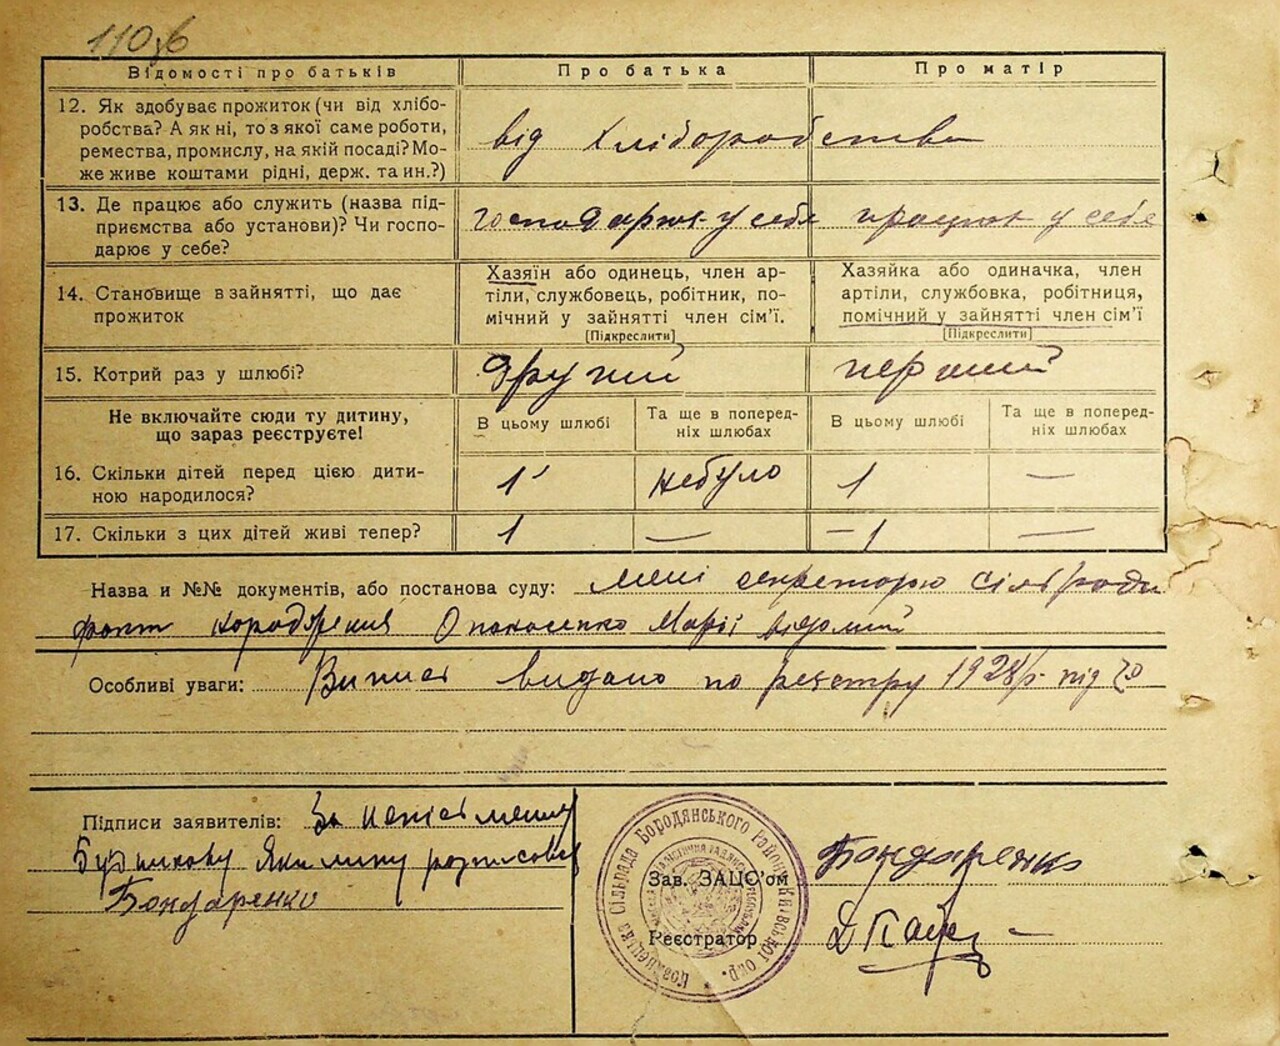 110зв
Відомості про батьків
Про батька
Про матір
12. Як здобуває прожиток (чи від хлібо-
робства? А як ні, то з якої саме роботи,
ремества, промислу, на якій посаді? Мо-
же живе коштами рідні, держ. та ин.?)
від хліборобства
13. Де працює або служить (назва під-
приємства або установи)? Чи госпо-
дарює у себе?
господарює у себе
працює у себе
14. Становище в зайнятті, що дає
прожиток
Хазяїн або одинець, член ар-
тіли, службовець, робітник, по-
мічний у зайнятті член сім'ї.
[Підкреслити]
Хазяйка або одиначка, член
артіли, службовка, робітниця,
помічний у зайнятті член сім'ї
[Підкреслити]
15. Котрий раз у шлюбі?
другий
перший
Не включайте сюди ту дитину,
що зараз реєструєте!
В цьому шлюбі
Та ще в поперед-
ніх шлюбах
В цьому шлюбі
Та ще в поперед-
ніх шлюбах
16. Скільки дітей перед цією дити-
ною народилося?
1
небуло
1
—
17. Скільки з цих дітей живі тепер?
1
—
1
—
Назва и №№ документів, або постанова суду: мені секреторю сільради
факт народження Опанасенко Марії відомий
Особливі уваги: Випись видано по реєстру 1928 р. під
Підписи заявителів: За неписьменну
Якилину розписовся
Бондаренко
Сільрада Бородянського Району Київської Окр.
Зав. ЗАЦС'ом Бондаренко
Реєстратор